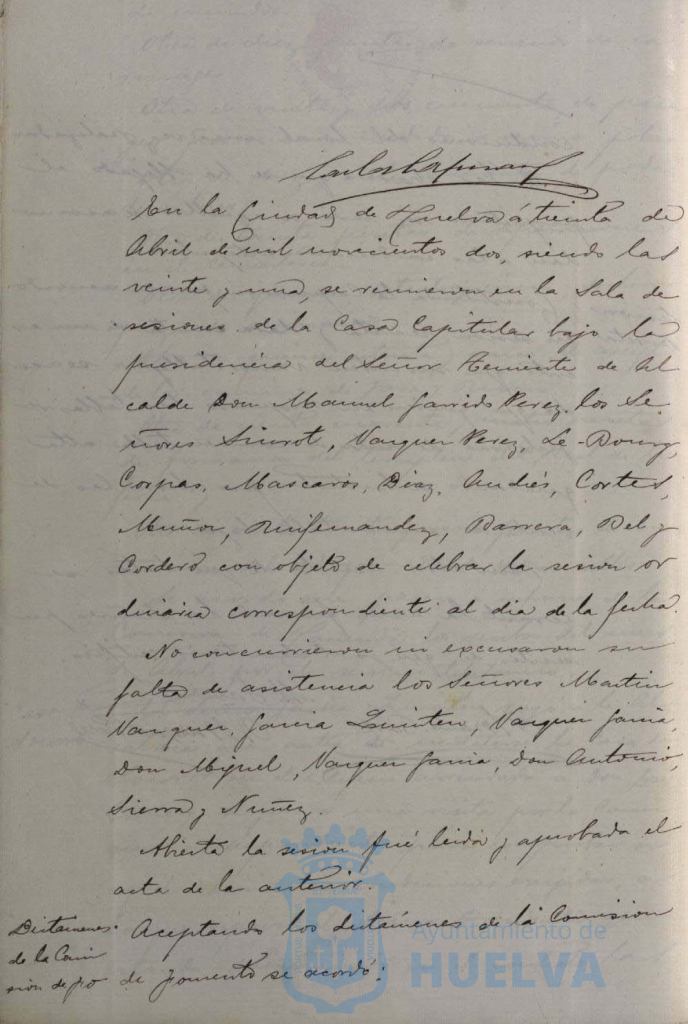 En la Ciudad de Huelva á treinta de
Abril de mil novecientos dos, siendo las
veinte y una, se reunieron en la Sala de
sesiones de la Casa Capitular bajo la
presidencia del Señor Teniente de Al
calde Don Manuel Garrido Perez, los Se
ñores Siurot, Vazquez Perez, Le-Bourg,
Corpas, Mascarós, Diaz, Andrés, Cortes,
Muñoz, Ruifernandez, Barrera, Bel y
Cordero con objeto de celebrar la sesion or
dinaria correspondiente al dia de la fecha.
No concurrieron ni excusaron su
falta de asistencia los Señores Martin
Vazquez, Garcia Quintero, Vazquez Garcia,
Don Miguel, Vazquez Garcia, Don Antonio,
Sierra y Nuñez.
Abierta la sesion fué leida y aprobada el
acta de la anterior.
Dictamenes
de la Comi
sion de
Aceptando los dictámenes de la Comision
de Fomento se acordó:
Ayuntamiento de
HUELVA